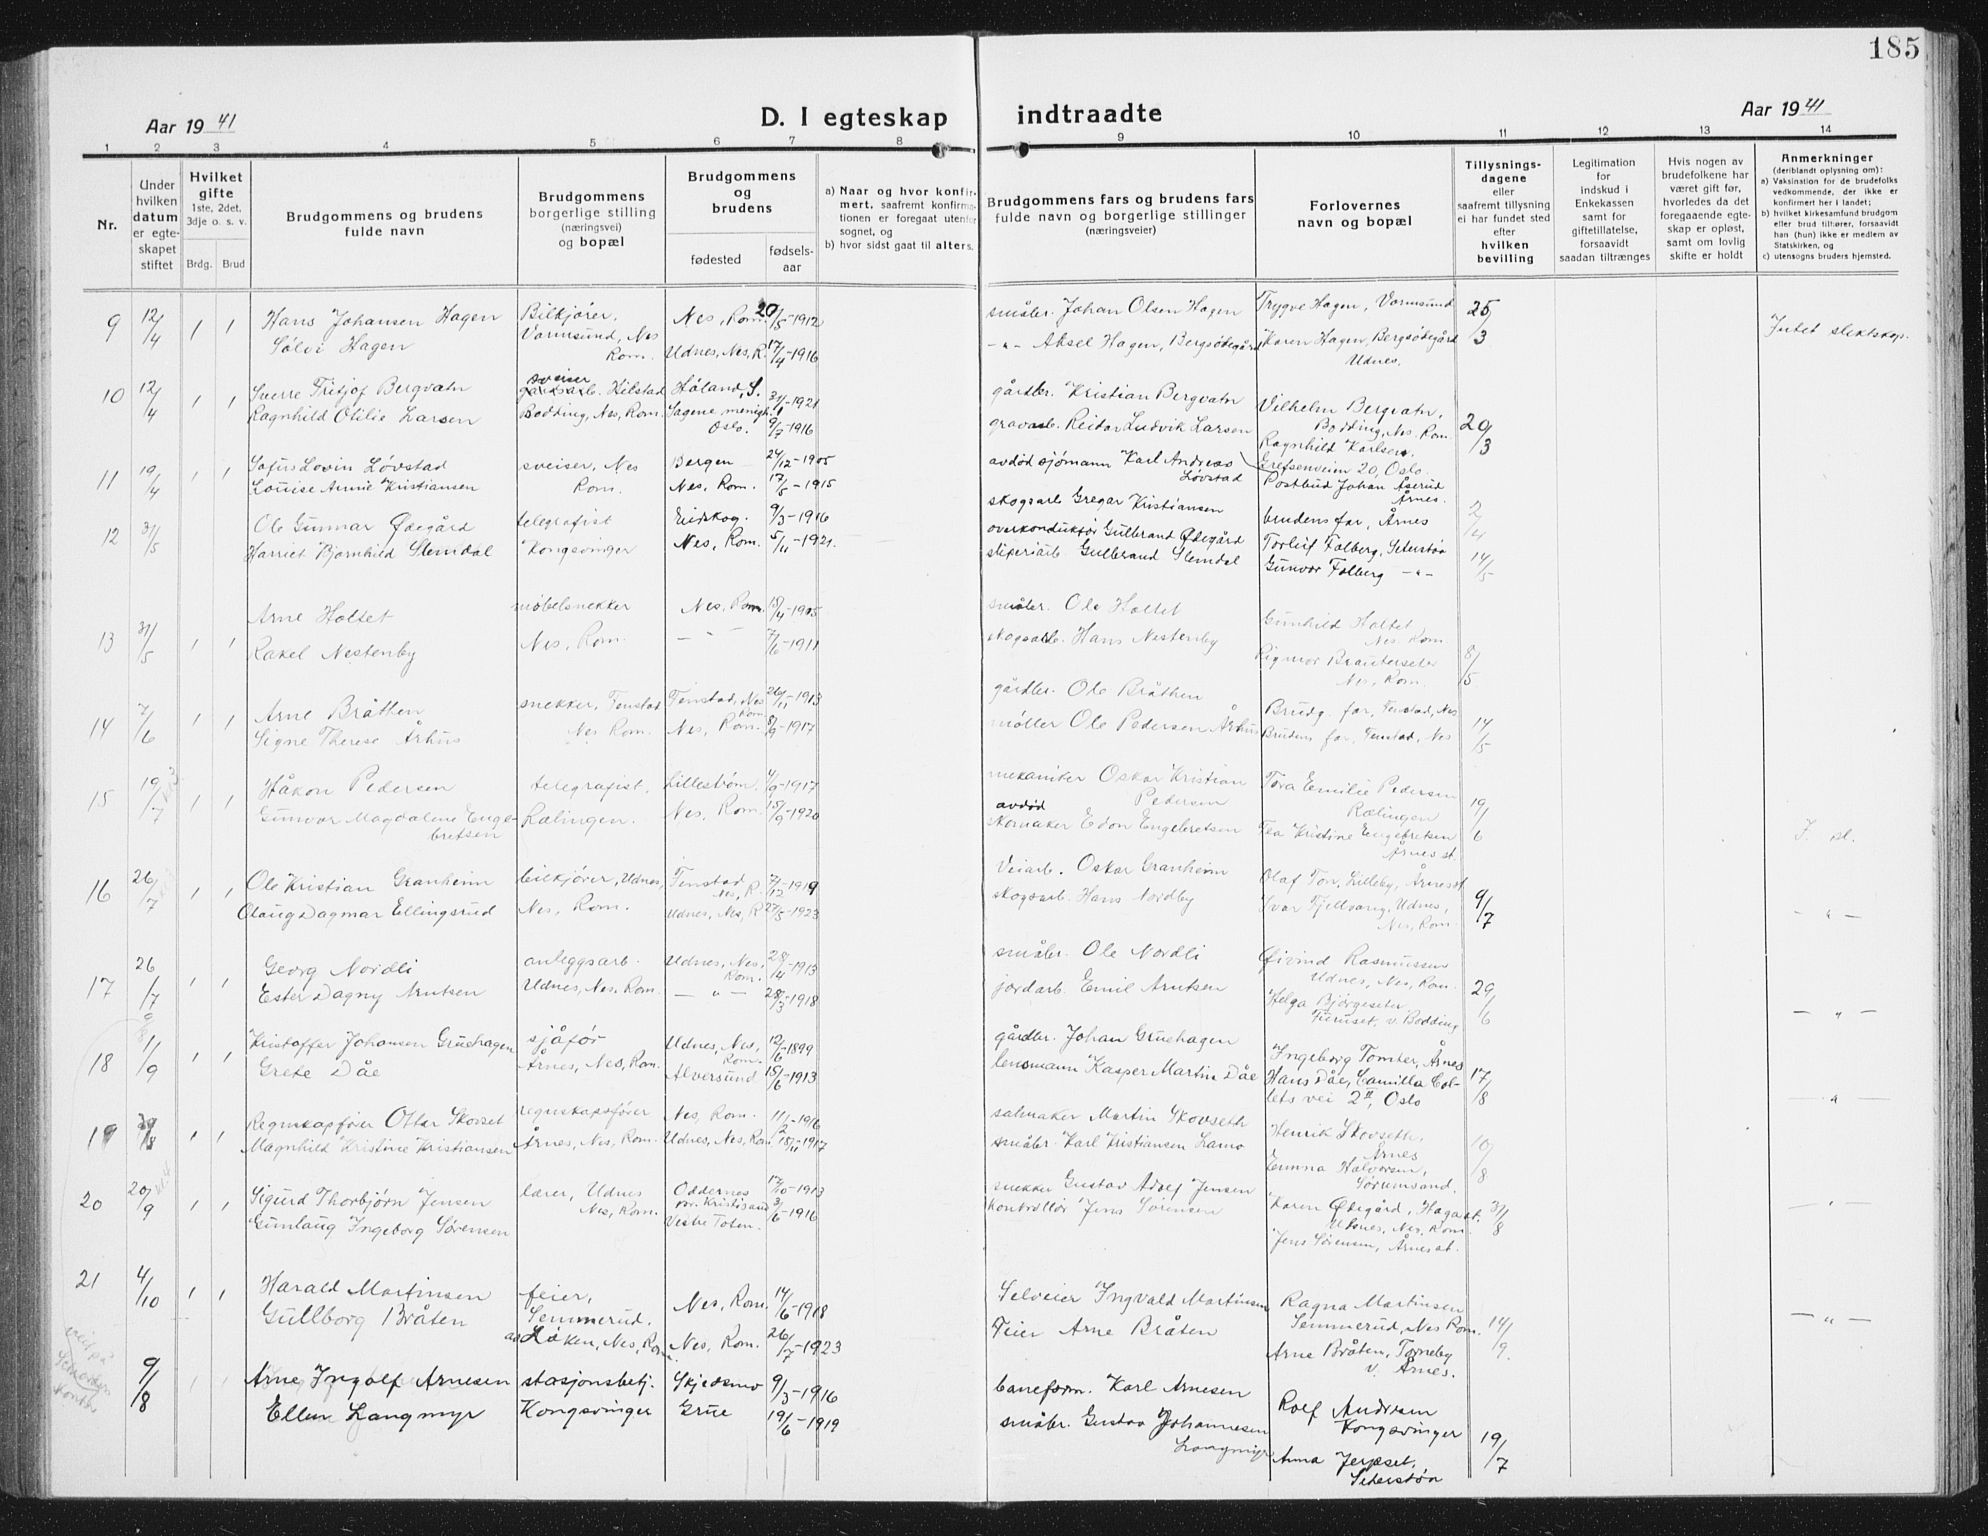 185
Aar 1941
D. I egteskap indtraadte
Aar 1941
1 2 3 4 5 6 7 8 9 10 11 12 13 14
Nr.
Under hvilken datum er egteskapet stiftet
Hvilket gifte
1ste, 2det, 3dje o. s. v.
Brdg. Brud
Brudgommens og brudens fulde navn
Brudgommens borgerlige stilling (næringsvei) og bopæl
Brudgommens og brudens
fødested
fødselsaar
a) Naar og hvor konfirmert, saafremt konfirmationen er foregaat utenfor sognet, og
b) hvor sidst gaat til alters.
Brudgommens fars og brudens fars fulde navn og borgerlige stillinger (næringsveier)
Forlovernes navn og bopæl
Tillysningsdagene eller saafremt tillysning ei har fundet sted efter hvilken bevilling
Legitimation for indskud i Enkekassen samt for giftetillatelse, forsaavidt saadan tiltrænges
Hvis nogen av brudefolkene har været gift før, hvorledes da det foregaaende egteskap er opløst, samt om lovlig skifte er holdt
Anmerkninger
(deriblandt oplysning om):
a) Vaksination for de brudefolks vedkommende, der ikke er konfirmert her i landet;
b) hvilket kirkesamfund brudgom eller brud tilhører, forsaavidt han (hun) ikke er medlem av Statskirken, og
c) utensogns bruders hjemsted.
9 12/4 1 1 Hans Johansen Hagen Bilkjører, Nes, Rom. 20/5-1912 småbr. Johan Olsen Hagen Trygve Hagen, Vormsund 25/3 Intet slektskap
Sølvi Hagen Vormsund, Nes Rom. Udnes, Nes, R. 17/4-1916 -"- Aksel Hagen, Bergsødegård Karen Hagen, Bergsødegård Udnes.
10 12/4 1 1 Sverre Fritjof Bergvatn sveiser Hilstad Håland, S. 31/1-1921 gårdbr. Kristian Bergvatn Vilhelm Bergvatn, Bodding, Nes. Rom. 29/3
Ragnhild Otilie Larsen Bodding, Nes, Rom. Sagene menigh. Oslo. 9/7-1916 gravarb. Reidar Ludvik Larsen Ragnhild Karlsen, Grefsenveien 20, Oslo.
11 19/4 1 1 Sofus Lovin Løvstad sveiser, Nes Bergen 24/12-1905 avdød sjømann Karl Andreas Løvstad Postbud Johan Åserud Årnes.
Louise Annie Kristiansen Rom. Nes, Rom. 17/5-1915 skogsarb. Gregar Kristiansen brudens far, Årnes 2/4
12 31/5 Ole Gunnar Ødegård telegrafist Eidskog. 9/3-1916 overkonduktør Gulbrand Ødegård Torleif Folberg, Seterstøa 14/5
Harriet Bjørnhild Slemdal Kongsvinger Nes, Rom. 5/11-1921. sliperiarb. Gulbrand Slemdal Gunvor Folberg -"-
13 31/5 1 1 Arne Holtet møbelsnekker Nes, Rom. 15/4-1905 småbr. Ole Holtet Gunhild Holtet Nes Rom.
Rakel Nestenby Nes, Rom. -"- 7/6-1911 skogsarb. Hans Nestenby Rigmor Brauterseter Nes, Rom. 8/5
14 7/6 1 1 Arne Bråthen snekker, Fenstad Fenstad, Nes Rom. 26/11-1913 gårdbr. Ole Bråthen Brudg. far, Fenstad, Nes 14/5
Signe Therese Århus Nes Rom. Nes, Rom. 8/9-1917 møller Ole Pedersen Århus Brudens far, Fenstad, Nes
15 19/7 1 1 Håkon Pedersen telegrafist. Lillestrøm. 4/9-1917 mekaniker Oskar Kristian Pedersen Tora Emilie Pedersen Rælingen 19/6
Gunvor Magdalene Engebretsen Rælingen. Nes, Rom. 15/9-1920 avdød skomaker Edon Engebretsen Tea Kristine Engebretsen Årnes st. I. sl.
16 26/7 1 1 Ole Kristian Granheim bilkjører, Udnes, Fenstad Nes, R. 7/12-1919 Veiarb. Oskar Granheim Olaf Ton, Lilleby, Årnes st 9/7
Olaug Dagmar Ellingsrud Nes, Rom. Udnes, Nes, R. 27/5-1923 skogsarb. Hans Nordby Ivar Fjellvang, Udnes, Nes, Rom. -"-
17 26/7 1 1 Georg Nordli anleggsarb. Udnes, Nes, Rom. 28/4-1913 småbr. Ole Nordli Øivind Rasmussen Udnes, Nes, Rom. 29/6
Ester Dagny Arntsen Udnes, Nes, Rom. -"- 28/3-1918 jordarb. Emil Arntsen Helga Bjørgeseter Fieruset, v. Bodding -"-
18 11/9 1 1 Kristoffer Johansen Gruehagen sjåfør Udnes, Nes, Rom. 12/6-1899 gårdbr. Johan Gruehagen Ingeborg Tomter, Årnes 17/8
Grete Dåe Årnes, Nes, Rom. Alversund 15/6-1913 lensmann Kasper Martin Dåe Hans Dåe, Camilla Collets vei 2 II, Oslo -"-
19 1 1 Regnskapsfører Ottar Skovset regnskapsfører Nes, Rom. 11/2-1916 salmaker Martin Skovseth Henrik Skovseth, Årnes 10/8
Magnhild Kristine Kristiansen Årnes, Nes, Rom. Udnes, Nes, Rom. 18/11-1917 småbr. Karl Kristiansen Lamo Emma Halvorsen, Sørumsand.
20 20/9 1 1 Sigurd Thorbjørn Jensen lærer, Udnes Oddernes pr. Kristisand 17/10-1913 snekker Gustav Adolf Jensen Karen Ødegård, Haga st. Udnes, Nes, Rom. 31/8 -"-
Gunlaug Ingeborg Sørensen Nes, Rom. Vestre Toten. 3/6-1916 Kontrollør Jens Sørensen Jens Sørensen, Årnes st.
21 4/10 1 1 Harald Martinsen feier, Semmerud. Nes, Rom. 14/6-1918 Selveier Ingvald Martinsen Ragna Martinsen Semmerud, Nes Rom. 14/9
Gullborg Bråten Løken, Nes, Rom. Nes, Rom. 26/7-1923 Feier Arne Bråten Arne Bråten, Torneby v. Årnes. -"-
9/8 Arne Ingolf Arnesen stasjonsbetj. Skjedsmo 9/3-1916 baneform. Karl Arnesen Rolf Andresen Kongsvinger 19/7
Ellen Langmyr Kongsvinger Grue 19/6-1919 småbr. Gustav Johannesen Langmyr Anna Jerpset, Seterstøa